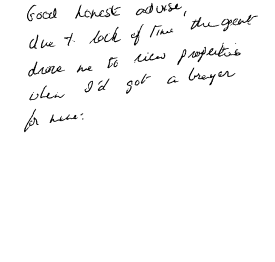 Good honest advise,
due to lack of time the agent
drove me to view properties
when I'd got a buyer
for mine.